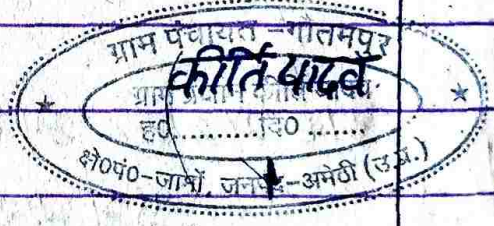 ग्राम पंचायत - गौतमपुर
कीर्ति यादव
ग्राम प्रधान कीर्ति यादव
ह०..........दि०.......
क्षे०पं०-जामों, जनपद-अमेठी (उ.प्र.)